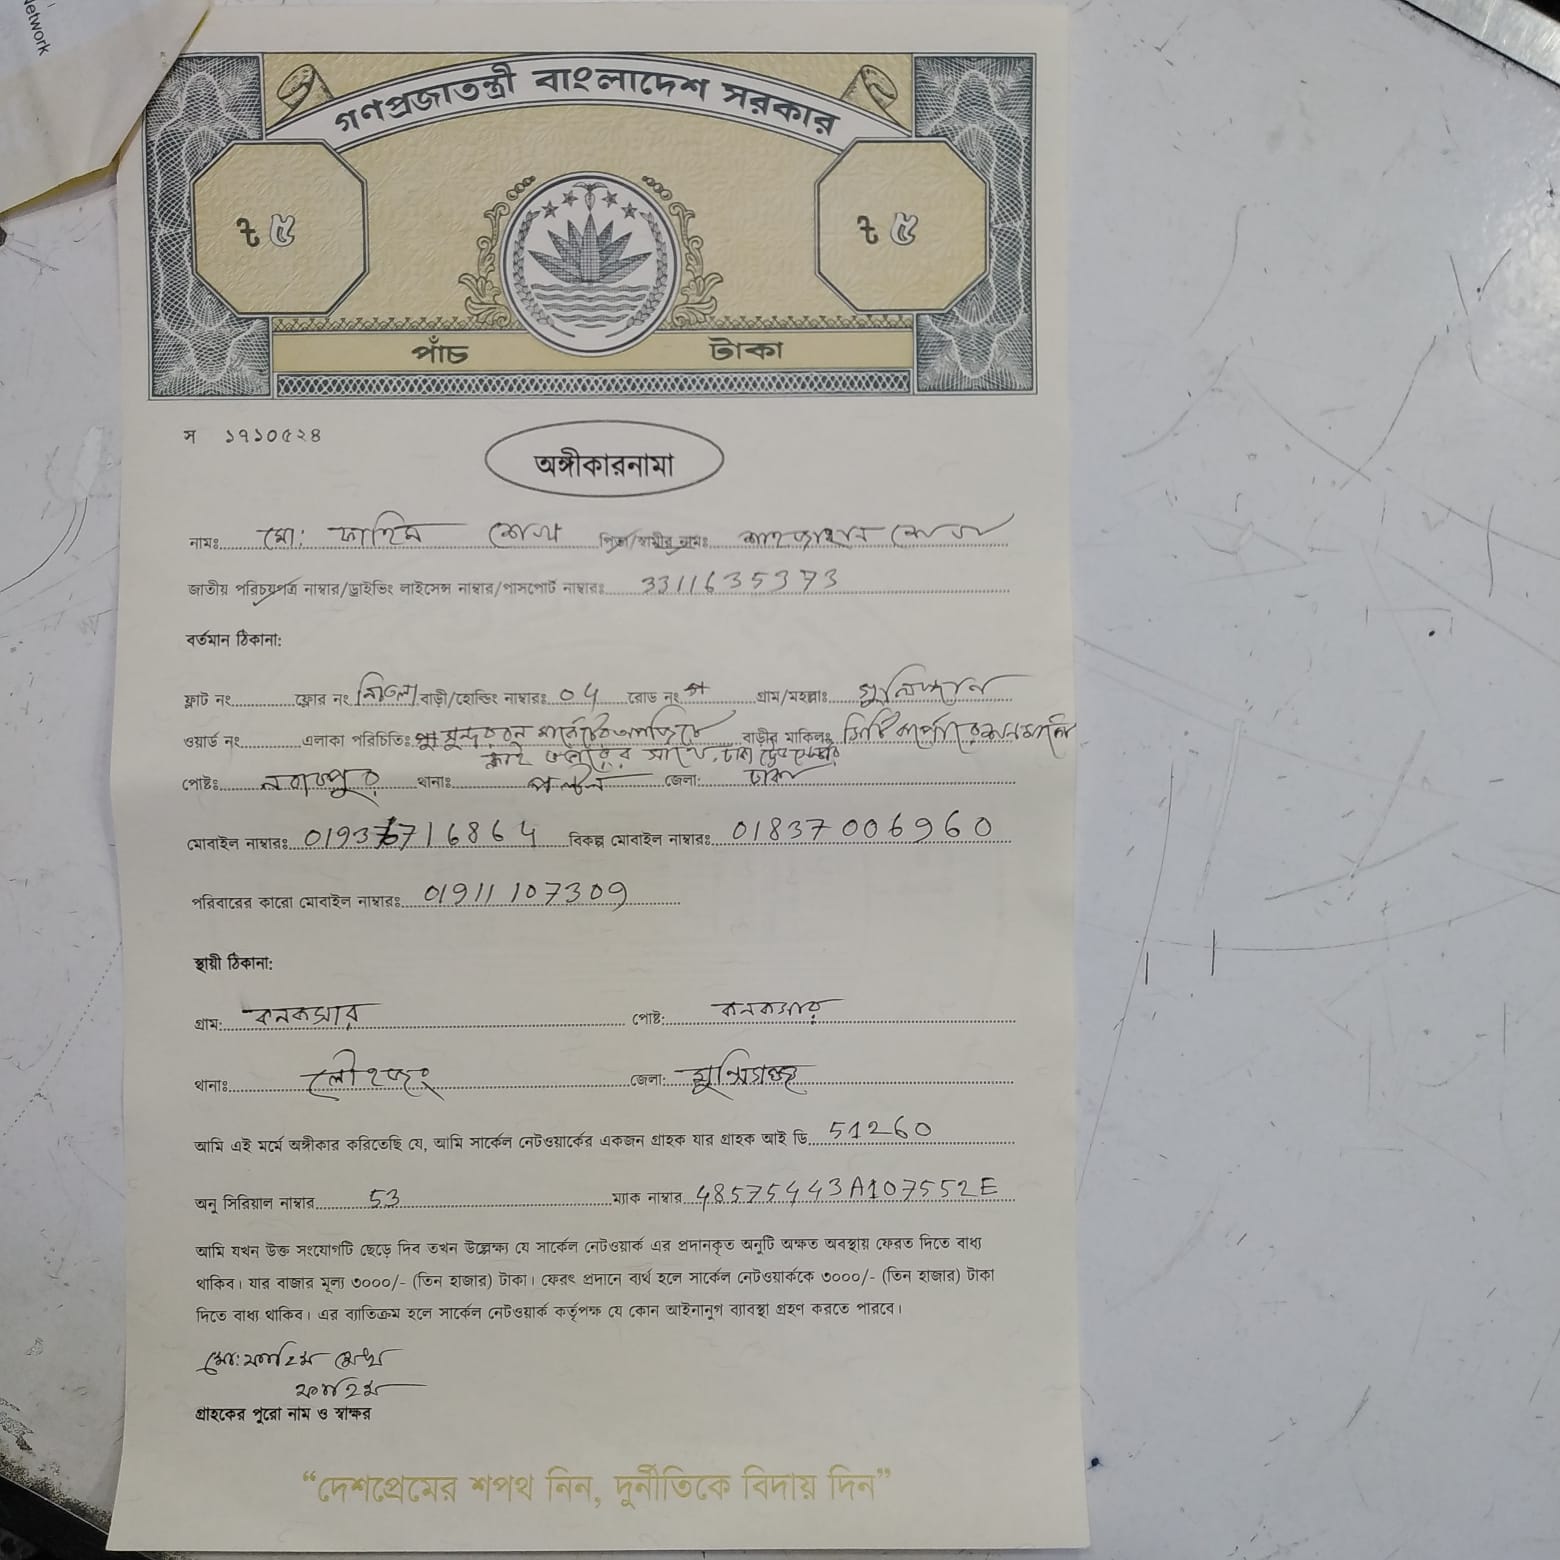 Network
গণপ্রজাতন্ত্রী বাংলাদেশ সরকার
৳ ৫ ৳ ৫
পাঁচ টাকা
স ১৭১০৫২৪
অঙ্গীকারনামা
নামঃ মো: ফাহিম শেখ পিতা/স্বামীর নামঃ শাহজাহান শেখ
জাতীয় পরিচয়পত্র নাম্বার/ড্রাইভিং লাইসেন্স নাম্বার/পাসপোর্ট নাম্বারঃ 3311635373
বর্তমান ঠিকানা:
ফ্লাট নং ফ্লোর নং নিচতলা বাড়ী/হোল্ডিং নাম্বারঃ 04 রোড নং গ্রাম/মহল্লাঃ গুলিস্থান
ওয়ার্ড নং এলাকা পরিচিতিঃ সুন্দরবন মার্কেটের বাড়ীর মালিকঃ সিটি কর্পোরেশন মার্কেট
ফ্লাই ওভারের সাথে, ঢাকা ট্রেড সেন্টার
পোষ্টঃ নবাবপুর থানাঃ পল্টন জেলা: ঢাকা
মোবাইল নাম্বারঃ 01936716864 বিকল্প মোবাইল নাম্বারঃ 01837006960
পরিবারের কারো মোবাইল নাম্বারঃ 01911107309
স্থায়ী ঠিকানা:
গ্রাম: কনকসার পোষ্ট: কনকসার
থানাঃ লৌহজং জেলা: মুন্সিগঞ্জ
আমি এই মর্মে অঙ্গীকার করিতেছি যে, আমি সার্কেল নেটওয়ার্কের একজন গ্রাহক যার গ্রাহক আই ডি 51260
অনু সিরিয়াল নাম্বার 53 ম্যাক নাম্বার 48575443A107552E
আমি যখন উক্ত সংযোগটি ছেড়ে দিব তখন উল্লেক্ষ্য যে সার্কেল নেটওয়ার্ক এর প্রদানকৃত অনুটি অক্ষত অবস্থায় ফেরত দিতে বাধ্য
থাকিব। যার বাজার মূল্য ৩০০০/- (তিন হাজার) টাকা। ফেরৎ প্রদানে ব্যর্থ হলে সার্কেল নেটওয়ার্ককে ৩০০০/- (তিন হাজার) টাকা
দিতে বাধ্য থাকিব। এর ব্যতিক্রম হলে সার্কেল নেটওয়ার্ক কর্তৃপক্ষ যে কোন আইনানুগ ব্যাবস্থা গ্রহণ করতে পারবে।
মো: ফাহিম শেখ
ফাহিম
গ্রাহকের পুরো নাম ও স্বাক্ষর
“দেশপ্রেমের শপথ নিন, দুর্নীতিকে বিদায় দিন”